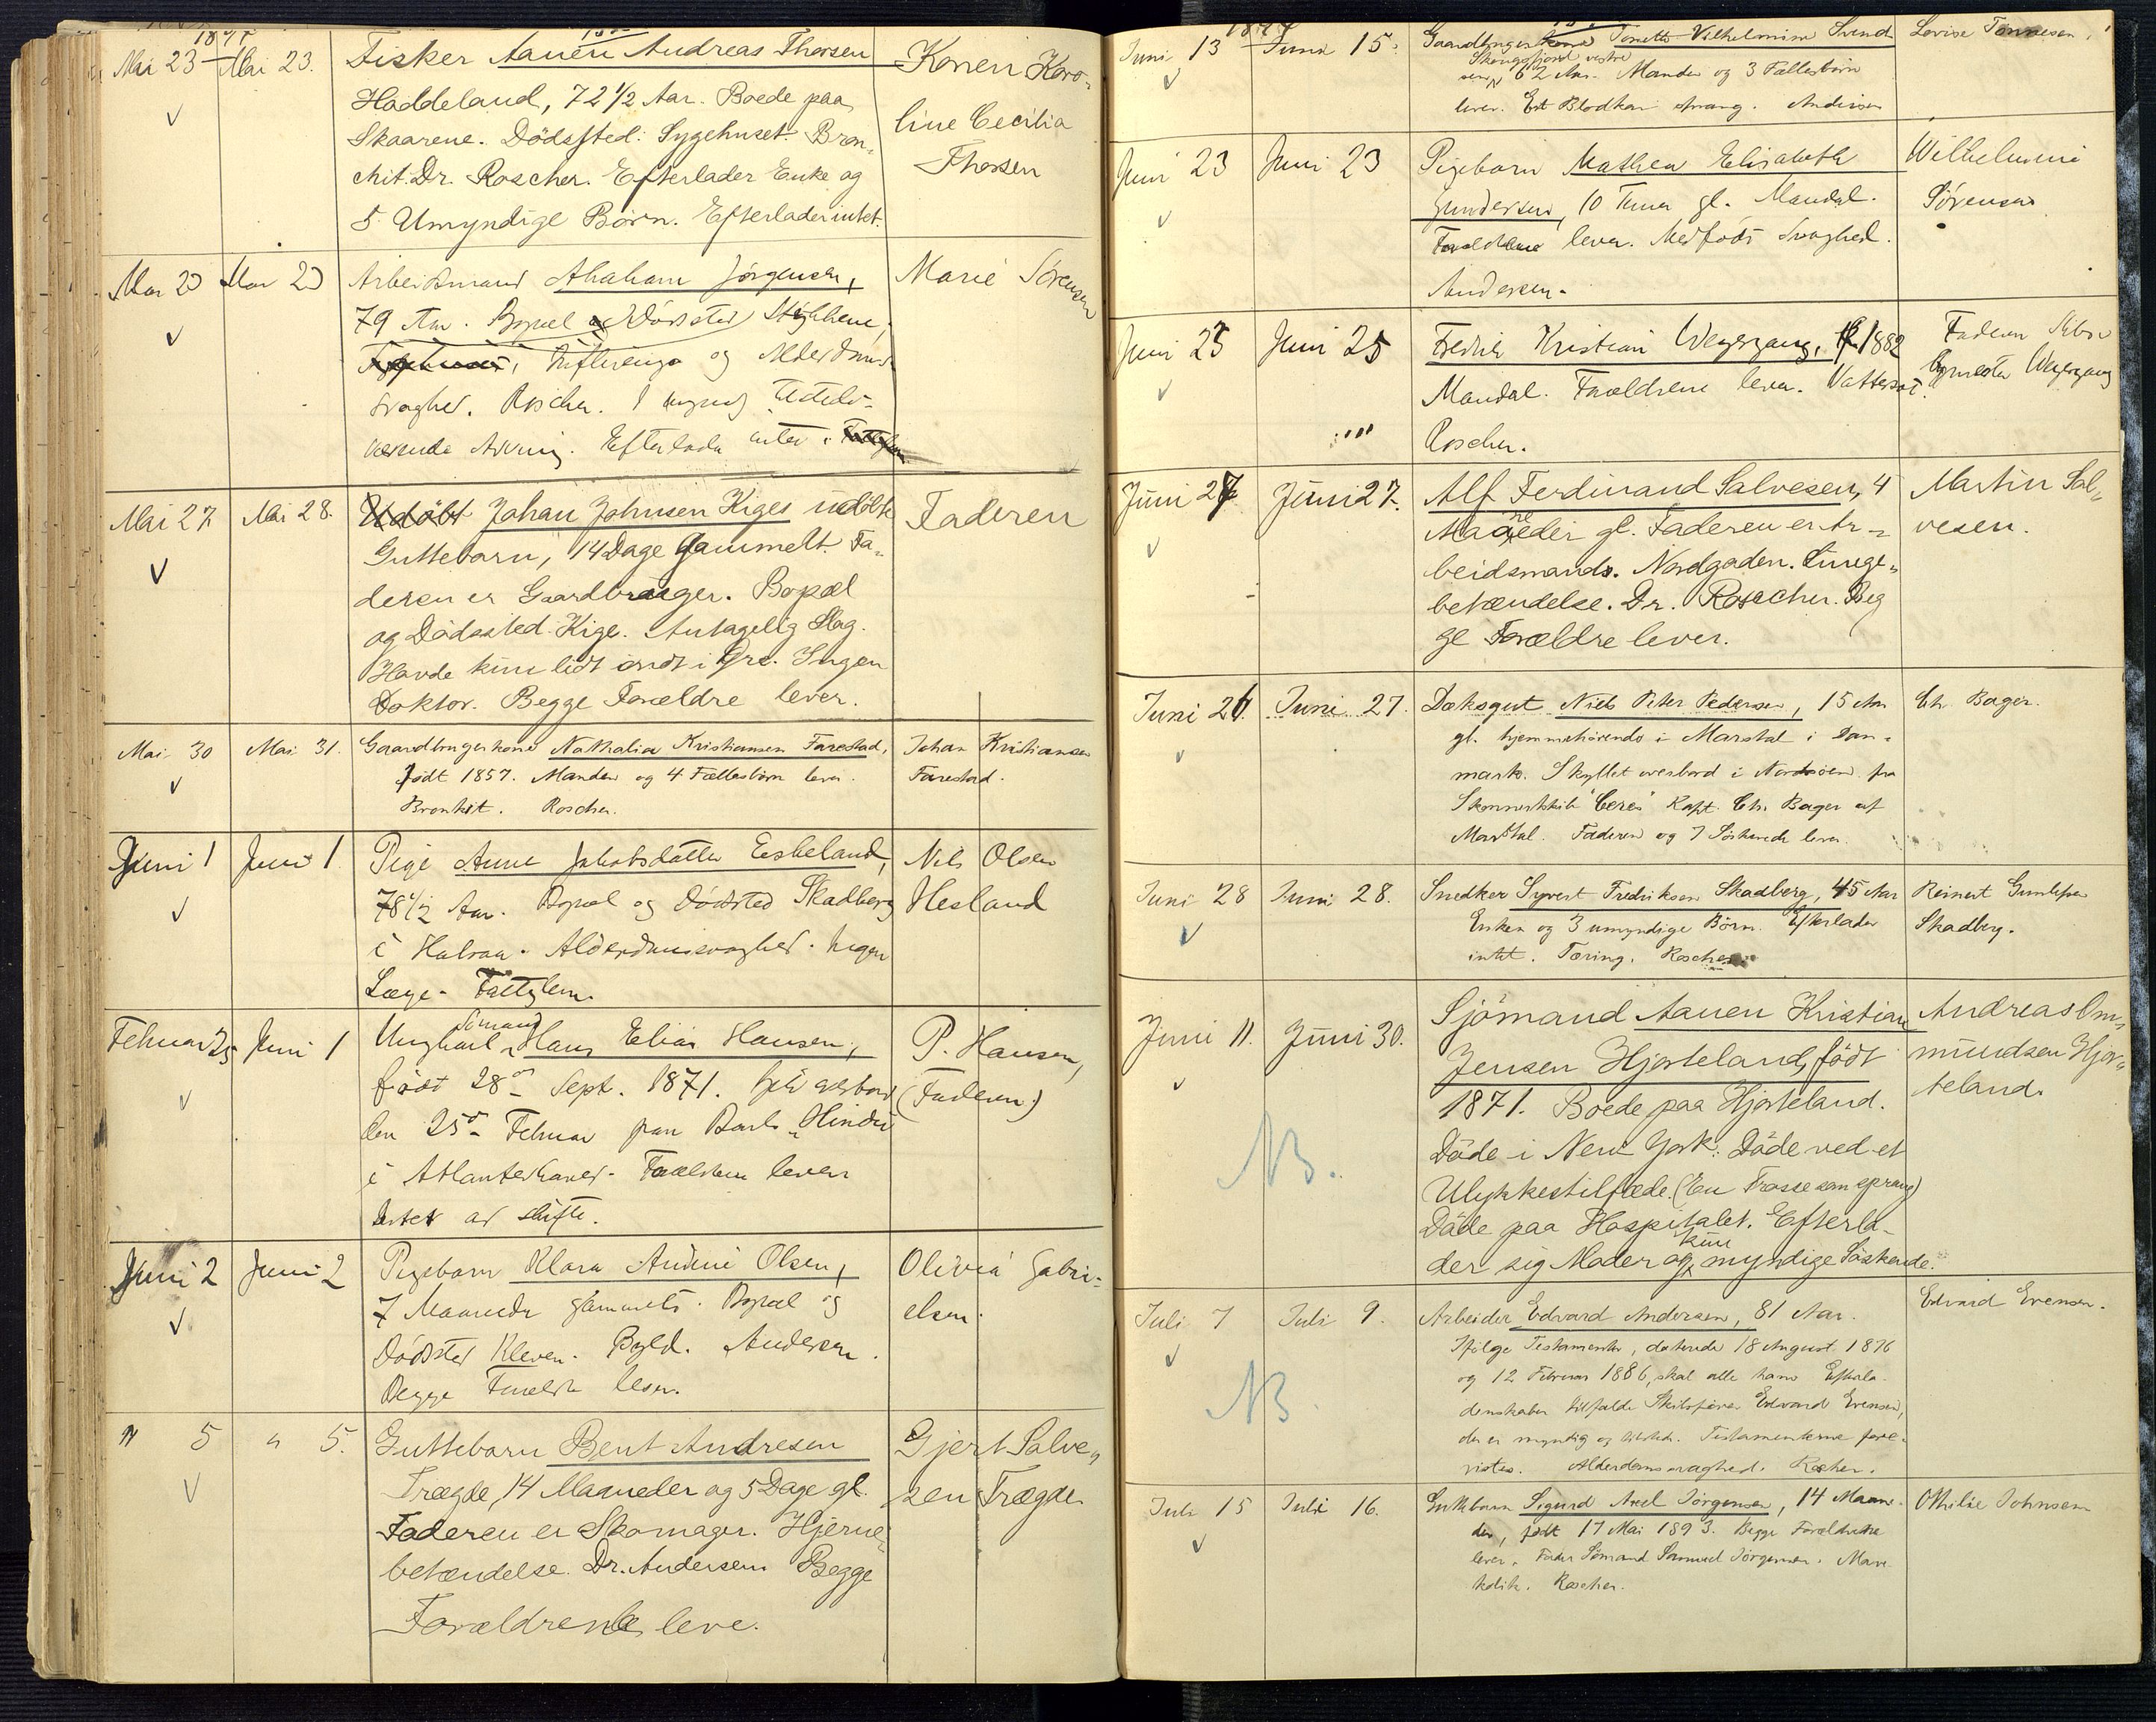 Mai 23 Mai 23. Fisker Aanen Andreas Thorsen Konen Karo-
Haddeland, 72 1/2 Aar. Boede paa line Cecilia
Skaarene. Dödssted: Sygehuset. Bron- Thorsen
chit. Dr. Roscher. Efterlader Enke og
5 Umyndige Børn. Efterlader intet.
Mai 23 Mai 23 Arbeidsmand Abraham Jörgensen, Marie Sörensen
79 Aar. Bopæl og Dödssted
Influenza og Alderdoms-
svaghed. Roscher. 1 myndig
værende Arving. Efterlader intet.
Mai 27 Mai 28. Udöbt Johan Johnsen Kige's udöbte Faderen
Guttebarn, 14 Dage gammelt. Fa-
deren er Gaardbruger. Bopæl
og Dödssted Kige. Antagelig Slag.
Havde kun lidt ondt i Øre. Ingen
Doktor. Begge Forældre lever.
Mai 30 Mai 31. Gaardbrugerkone Nathalia Kristiansen Farestad, Johan Kristiansen
født 1857. Manden og 4 Fællesbørn lever. Farestad.
Bronkit. Roscher.
Juni 1 Juni 1. Pige Anne Jakobsdatter Eskeland, Nils Olsen
78 1/2 Aar. Bopæl og Dödssted Skadberg Hesland
i Halsaa. Alderdomssvaghed. Ingen
Læge. Fattiglem.
Februar 25 Juni 1 Ungkarl Sömand Hans Elias Hansen, P. Hansen,
født 28de Sept. 1871. overbord (Faderen)
den 25de Februar fra Bark "Hindu"
i Atlanterhavet. Forældrene lever
Intet at skifte.
Juni 2 Juni 2 Pigebarn Klara Andine Olsen, Olivia Gabri-
7 Maaneder gammelt. Bopæl og elsen.
Dödssted Kleven. Byld. Andersen.
Begge Forældre lever.
" 5 " 5. Guttebarn Bent Andresen Gjert Salve-
Trægde, 14 Maaneder og 5 Dage gl. sen Trægde.
Faderen er Skomager. Hjerne-
betændelse. Dr. Andersen. Begge
Forældrene leve.
Juni 13 Juni 15. Gaardbrugerkone Tonette Vilhelmine Svend- Lovise Tønnesen
sen, 62 Aar. Manden og 3 Fællesbørn
lever. Et Blodkar sprang. Andersen
Juni 23 Juni 23 Pigebarn Mathea Elisabeth Wilhelmine
Gundersen, 10 Timer gl. Mandal. Sörensen
Forældrene lever. Medfödt Svaghed.
Andersen.
Juni 25 Juni 25 Fredrik Kristian Weyergang, f. 1882 Faderen
Mandal. Forældrene lever. Vattersot. Weyergang
Roscher.
Juni 27 Juni 27. Alf Ferdinand Salvesen, 4 Martin Sal-
Maaneder gl. Faderen er Ar- vesen.
beidsmand. Nordgaden. Lunge-
betændelse. Dr. Roscher. Beg
ge Forældre lever.
Juni 26. Juni 27. Dæksgut Niels Peter Pedersen, 15 Aar Ch. Bager.
gl. hjemmehörende i Marstal i Dan-
mark. Skyllet overbord i Nordsöen fra
Skonnertskib "Ceres" Kapt. Ch. Bager af
Marstal. Faderen og 7 Söskende lever.
Juni 28 Juni 28. Snedker Syvert Fredriksen Skadberg, 45 Aar Reinert Gunlefsen
Enken og 3 umyndige Børn. Efterlader Skadberg.
intet. Tæring. Roscher.
Juni 11. Juni 30. Sjömand Aanen Kristian Andreas Om-
Jensen Hjorteland, födt mundsen Hjor-
1871. Boede paa Hjorteland. teland.
Döde i New York. Döde ved et
NB. Ulykkestilfælde. (En Trosse som sprang)
Döde paa Hospitalet. Efterla-
der sig Moder og kun myndige Söskende.
Juli 7 Juli 9. Arbeider Edvard Andersen, 81 Aar. Edvard Evensen.
Ifölge Testamenter, daterede 18 August 1876
og 12 Februar 1886, skal alle hans Efterla-
NB denskaber tilfalde Skibsförer Edvard Evensen,
der er myndig og tilstede. Testamenterne fore-
vistes. Alderdomssvaghed. Roscher.
Juli 15 Juli 16. Guttebarn Sigurd Axel Jörgensen, 14 Maane- Othilie Johnsen
der, født 17 Mai 1893. Begge Forældrene
lever. Fader Sömand Samuel Jörgensen.
Roscher.